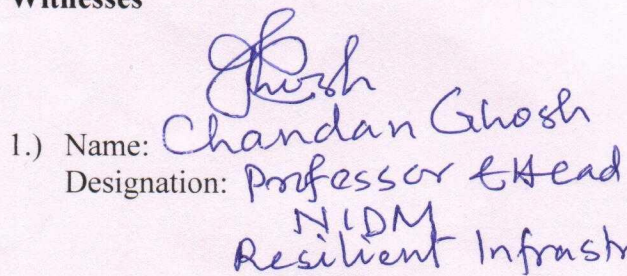 Witnesses
Ghosh
1.) Name: Chandan Ghosh
Designation: Professor & Head
NIDM
Resilient Infrastr